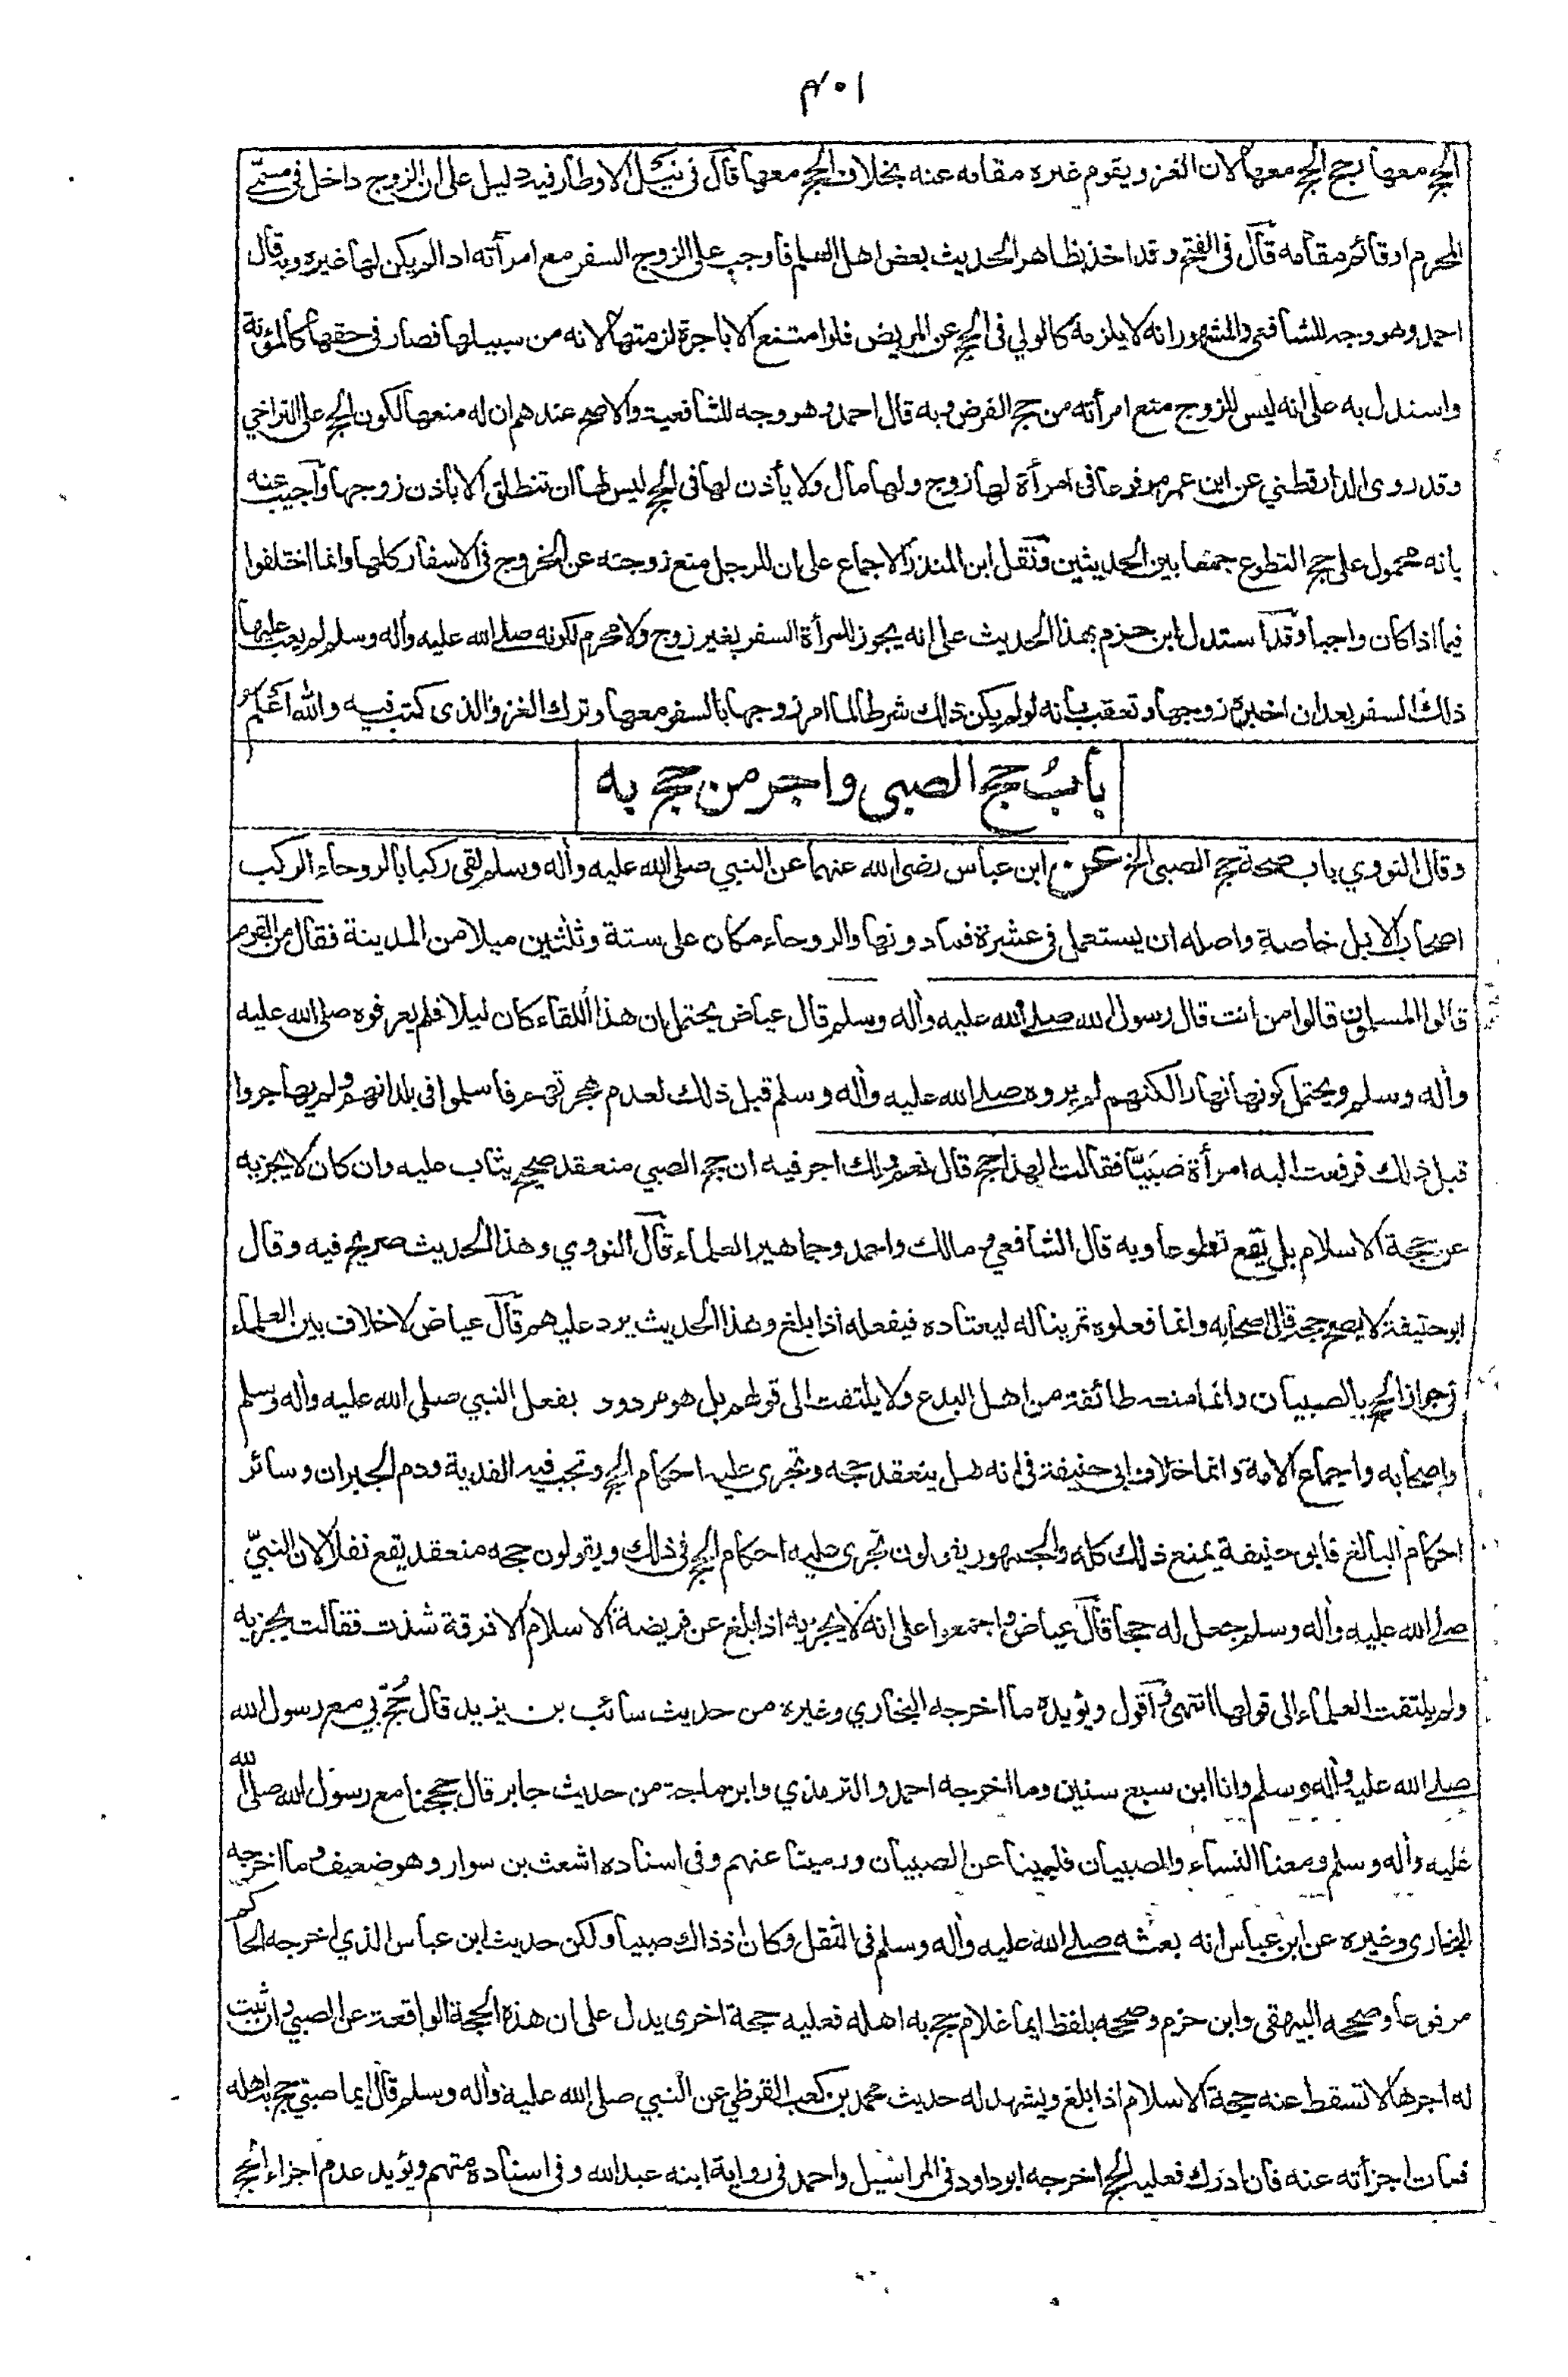 ٤٠١
الحج معها برجح الحج معها لان الغزو يقوم غيره مقامه عنه بخلاف الحج معها قال في نيل الاوطار فيه دليل على ان الزوج داخل في مسمى
المحرم او قائم مقامه قال في الفتح وقد اخذ بظاهر الحديث بعض اهل العلم فاوجب على الزوج السفر مع امرأته اذا لم يكن لها غيره وبه قال
احمد وهو وجه للشافعي والمشهور انه لا يلزمه كالولي في الحج عن المريض فلو امتنع الا باجرة لزمتها لانه من سبيلها فصار في حقها كالمؤنة
واستدل به على انه ليس للزوج منع امرأته من حج الفرض وبه قال احمد وهو وجه للشافعية والاصح عندهم ان له منعها لكون الحج على التراخي
وقد روى الدارقطني عن ابن عمر مرفوعا في امرأة لها زوج ولها مال ولا يأذن لها في الحج ليس لها ان تنطلق الا باذن زوجها وأجيب عنه
بانه محمول على حج التطوع جمعا بين الحديثين ونقل ابن المنذر الاجماع على ان للرجل منع زوجته عن الخروج في الاسفار كلها وانما اختلفوا
فيما اذا كان واجبا وقد استدل ابن حزم بهذا الحديث على انه يجوز للمرأة السفر بغير زوج ولا محرم لكونه صلى الله عليه وأله وسلم لم يعب عليها
ذلك السفر بعد ان اخبره زوجها وتعقب بأنه لو لم يكن ذلك شرطا لما امر زوجها بالسفر معها وترك الغزو الذى كتب فيه والله اعلم
بابُ حج الصبى واجر من حج به
وقال النووي باب صحة حج الصبى الخ عن ابن عباس رضى الله عنهما عن النبي صلى الله عليه وأله وسلم لقى ركبا بالروحاء الركب
اصحاب الابل خاصة واصله ان يستعمل في عشرة فما دونها والروحاء مكان على ستة وثلثين ميلا من المدينة فقال من القوم
قالوا المسلمون قالوا من انت قال رسول الله صلى الله عليه وأله وسلم قال عياض يحتمل ان هذا اللقاء كان ليلا فلم يعرفوه صلى الله عليه
وأله وسلم ويحتمل كونها نهارا لكنهم لم يروه صلى الله عليه وأله وسلم قبل ذلك لعدم هجرتهم فاسلموا في بلدانهم ولم يهاجروا
قبل ذلك فرفعت اليه امرأة صَبيّا فقالت الهذا حج قال نعم ولك اجر فيه ان حج الصبي منعقد صحيح يثاب عليه وان كان لا يجزيه
عن حجة الاسلام بل يقع تطوعا وبه قال الشافعي ومالك واحمد وجماهير العلماء قال النووي وهذا الحديث صريح فيه وقال
ابو حنيفة لا يصح حجه قال اصحابه وانما فعلوه تمرينا له ليعتاده فيفعله اذا بلغ وهذا الحديث يرد عليهم قال عياض لا خلاف بين العلماء
في جواز الحج بالصبيان وانما منعه طائفة من اهل البدع ولا يلتفت الى قولهم بل هو مردود بفعل النبي صلى الله عليه وأله وسلم
واصحابه واجماع الامة وانما خلاف ابى حنيفة في انه هل ينعقد حجه وتجرى عليه احكام الحج وتجب فيه الفدية ودم الجبران وسائر
احكام البالغ فابو حنيفة يمنع ذلك كله والجمهور يقولون تجرى عليه احكام الحج في ذلك ويقولون حجه منعقد يقع نفلا لان النبيّ
صلى الله عليه وأله وسلم جعل له حجا قال عياض واجمعوا على انه لا يجزيه اذا بلغ عن فريضة الاسلام الا فرقة شذت فقالت يجزيه
ولم يلتفت العلماء الى قولها انتهى وأقول ويؤيده ما اخرجه البخاري وغيره من حديث سائب بن يزيد قال حُجّ بي مع رسول الله
صلى الله عليه وأله وسلم وانا ابن سبع سنين وما اخرجه احمد والترمذي وابن ماجة من حديث جابر قال حججنا مع رسول الله صلى الله
عليه وأله وسلم ومعنا النساء والصبيان فلبينا عن الصبيان ورمينا عنهم وفى اسناده اشعث بن سوار وهو ضعيف وما اخرجه
البخارى وغيره عن ابن عباس انه بعثه صلى الله عليه وأله وسلم في الثقل وكان اذ ذاك صبيا ولكن حديث ابن عباس الذي اخرجه الحاكم
مرفوعا وصححه البيهقى وابن حزم وصححه بلفظ ايما غلام حج به اهله فعليه حجة اخرى يدل على ان هذه الحجة الواقعة عن الصبي وان ثبت
له اجرها لا تسقط عنه حجة الاسلام اذا بلغ ويشهد له حديث محمد بن كعب القرظي عن النبي صلى الله عليه وأله وسلم قال ايما صبي حج به اهله
فمات اجزأته عنه فان ادرك فعليه الحج اخرجه ابو داود في المراسيل واحمد في رواية ابنه عبد الله وفى اسناده متهم ويؤيد عدم اجزاء الحج